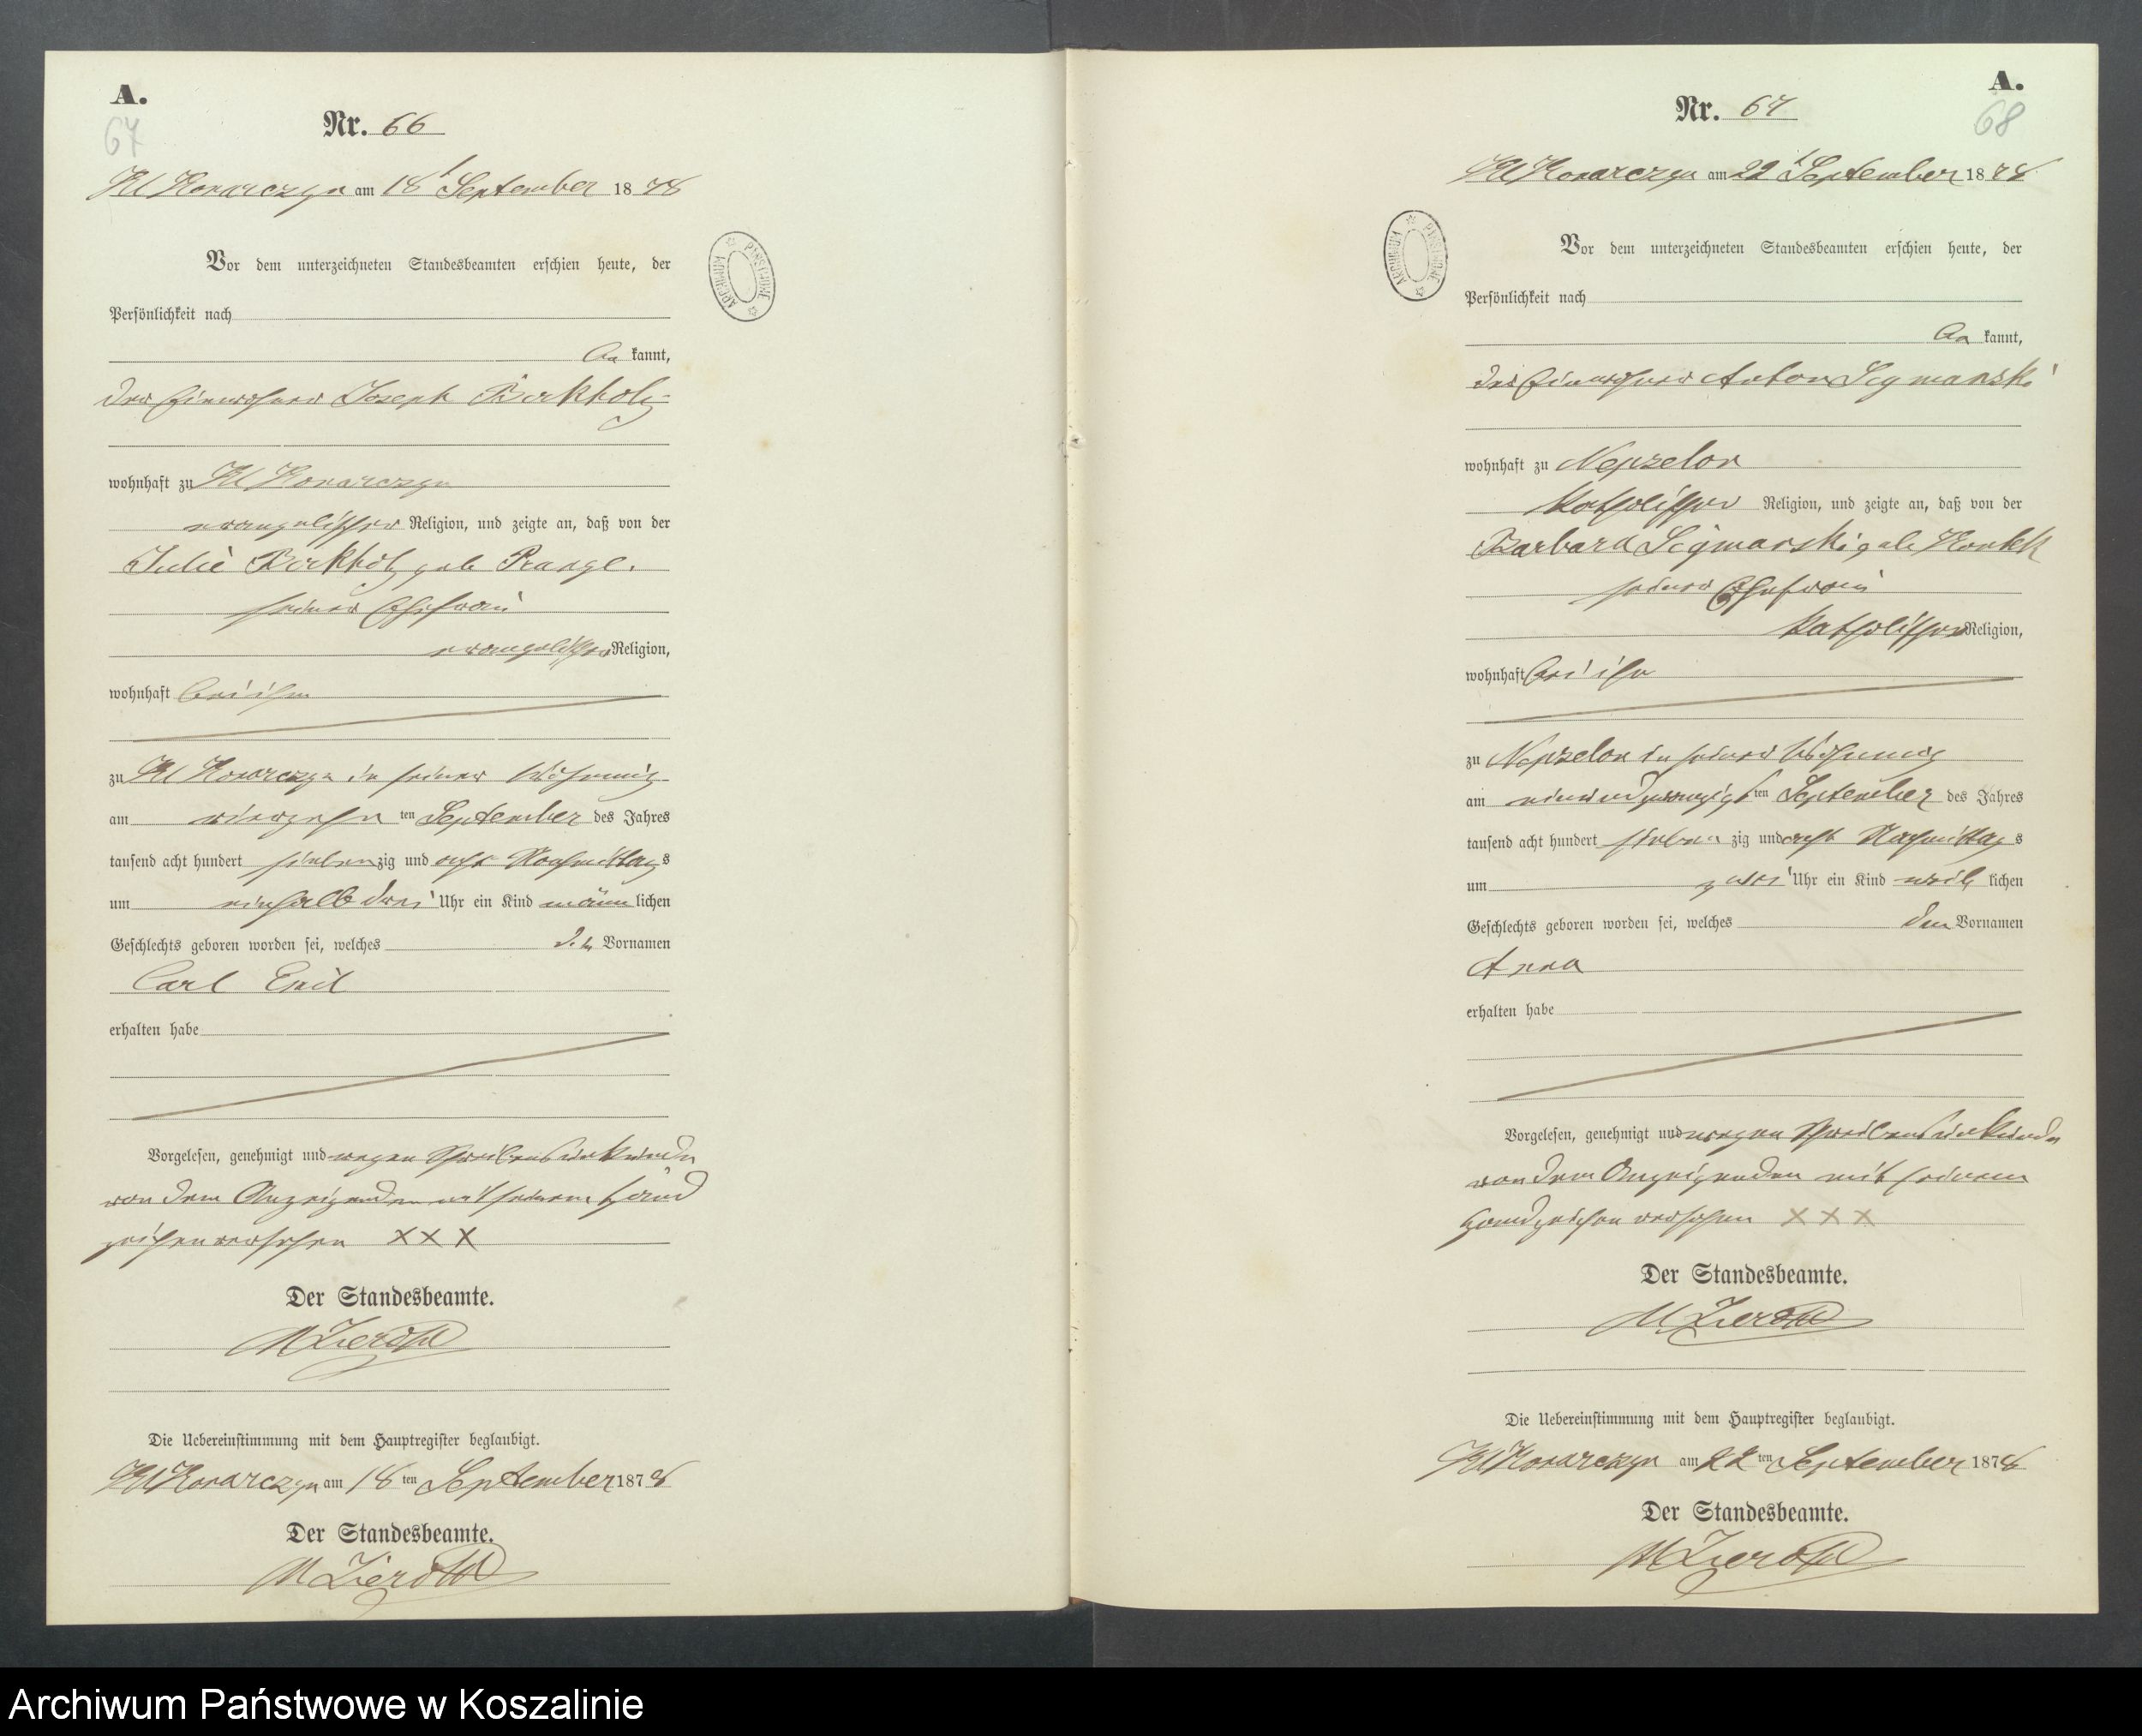 A.
67
Nr. 66
Kl Konarczyn am 18t September 1878
Vor dem unterzeichneten Standesbeamten erschien heute, der
Persönlichkeit nach
be kannt,
der Einwohner Joseph Birkholz
wohnhaft zu Kl Konarczyn
evangelischer Religion, und zeigte an, daß von der
Julie Birkholz geb Prange.
seiner Ehefrau
evangelischer Religion,
wohnhaft bei ihm
zu Kl Konarczyn in seiner Wohnung
am vierzehn ten September des Jahres
tausend acht hundert sieben zig und acht Nachmittag s
um einhalb drei Uhr ein Kind männ lichen
Geschlechts geboren worden sei, welches den Vornamen
Carl Emil
erhalten habe
Vorgelesen, genehmigt und wegen Schreibensunkunde
von dem Anzeigenden mit seinem Hand
zeichen versehen XXX
Der Standesbeamte.
Die Uebereinstimmung mit dem Hauptregister beglaubigt.
Kl Konarczyn am 18 ten September 1878
Der Standesbeamte.
ARCHIWUM PAŃSTWOWE
A.
68
Nr. 67
Kl Konarczyn am 22t September 1878
Vor dem unterzeichneten Standesbeamten erschien heute, der
Persönlichkeit nach
be kannt,
der Einwohner Anton Sigmanski
wohnhaft zu
katholischer Religion, und zeigte an, daß von der
Barbara Sigmanski geb
seiner Ehefrau
katholischer Religion,
wohnhaft bei ihm
zu in seiner Wohnung
am einundzwanzigst ten September des Jahres
tausend acht hundert sieben zig und acht Nachmittag s
um zwei Uhr ein Kind weib lichen
Geschlechts geboren worden sei, welches den Vornamen
Anna
erhalten habe
Vorgelesen, genehmigt und wegen Schreibensunkunde
von dem Anzeigenden mit seinem
Handzeichen versehen XXX
Der Standesbeamte.
Die Uebereinstimmung mit dem Hauptregister beglaubigt.
Kl Konarczyn am 22 ten September 1878
Der Standesbeamte.
ARCHIWUM PAŃSTWOWE
Archiwum Państwowe w Koszalinie